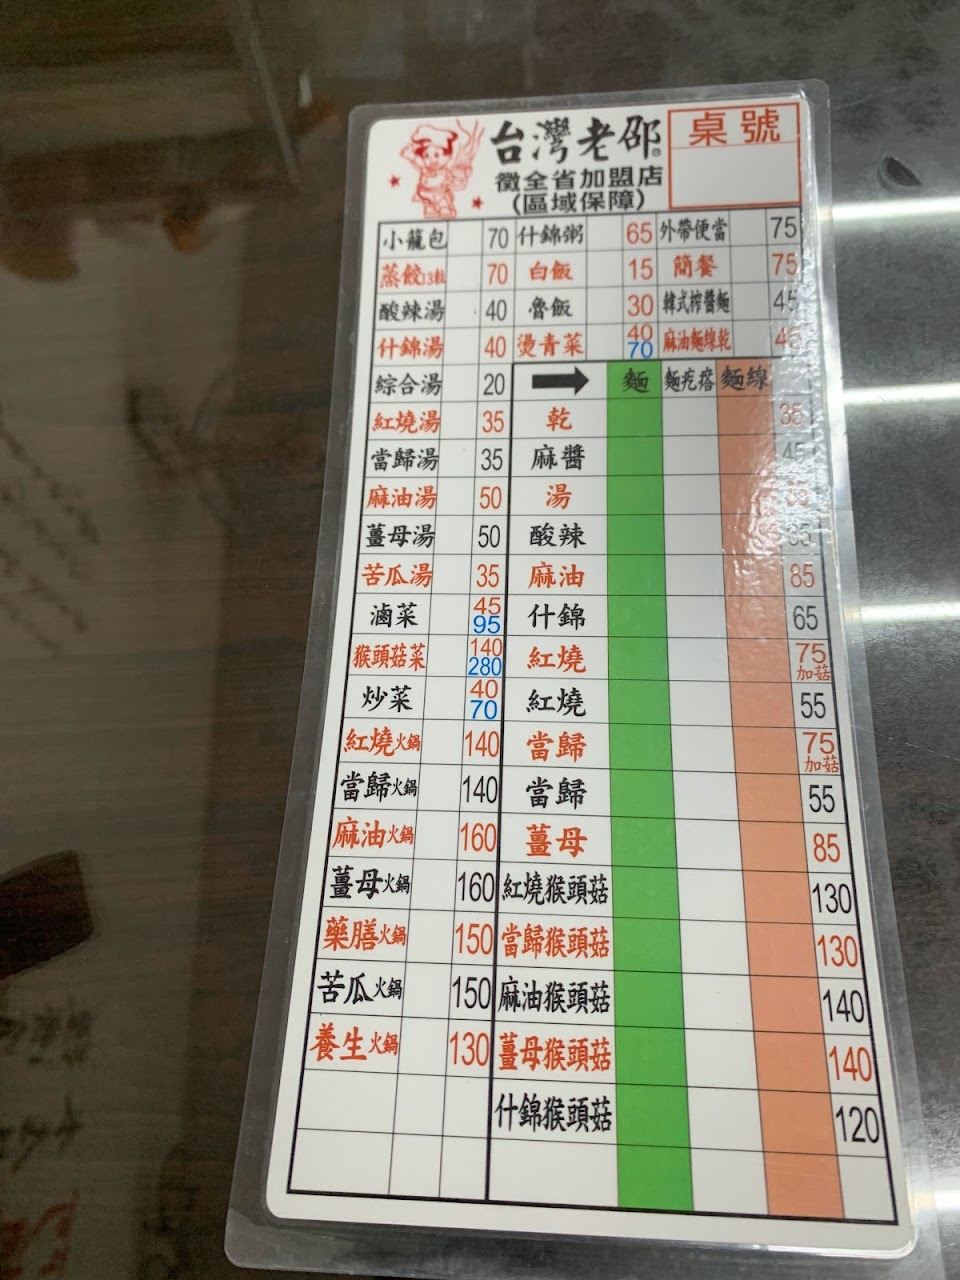 台灣老邵®
徵全省加盟店
(區域保障)
桌號
小籠包 70 什錦粥 65 外帶便當 75
蒸餃13粒 70 白飯 15 簡餐 75
酸辣湯 40 魯飯 30 韓式榨醬麵 45
什錦湯 40 燙青菜 40 70 麻油麵線乾 45
綜合湯 20 麵 麵疙瘩 麵線
紅燒湯 35 乾 35
當歸湯 35 麻醬 45
麻油湯 50 湯
薑母湯 50 酸辣
苦瓜湯 35 麻油 85
滷菜 45 95 什錦 65
猴頭菇菜 140 280 紅燒 75 加菇
炒菜 40 70 紅燒 55
紅燒火鍋 140 當歸 75 加菇
當歸火鍋 140 當歸 55
麻油火鍋 160 薑母 85
薑母火鍋 160 紅燒猴頭菇 130
藥膳火鍋 150 當歸猴頭菇 130
苦瓜火鍋 150 麻油猴頭菇 140
養生火鍋 130 薑母猴頭菇 140
什錦猴頭菇 120